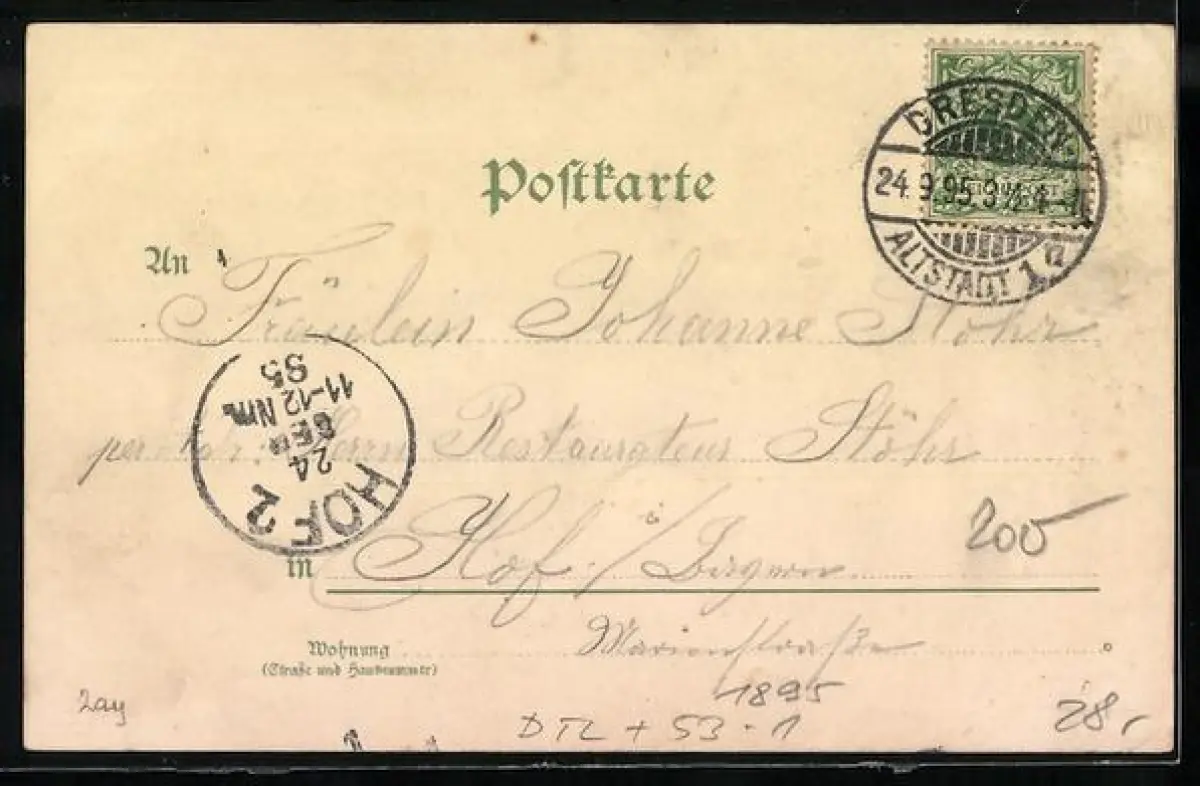 DRESDEN-
24.9.95.3½4-
ALTSTADT 1 a
Postkarte
An Fräulein Johanne Stöhr
Herrn Restaurateur Stöhr
in Hof i/ Bayern
Wohnung Marienstraße
(Straße und Hausnummer)
HOF 2
24
SEP
11-12 Nm.
95
200
1895
DTL + 53-1
28,-